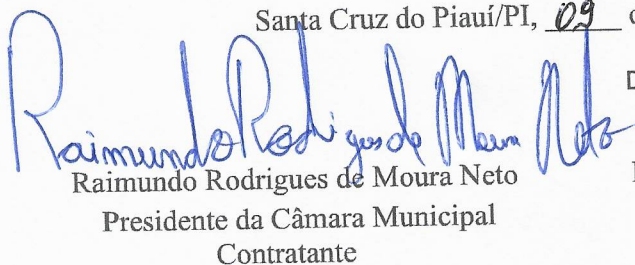 Santa Cruz do Piauí/PI, 09
Raimundo Rodrigues de Moura Neto
Raimundo Rodrigues de Moura Neto
Presidente da Câmara Municipal
Contratante